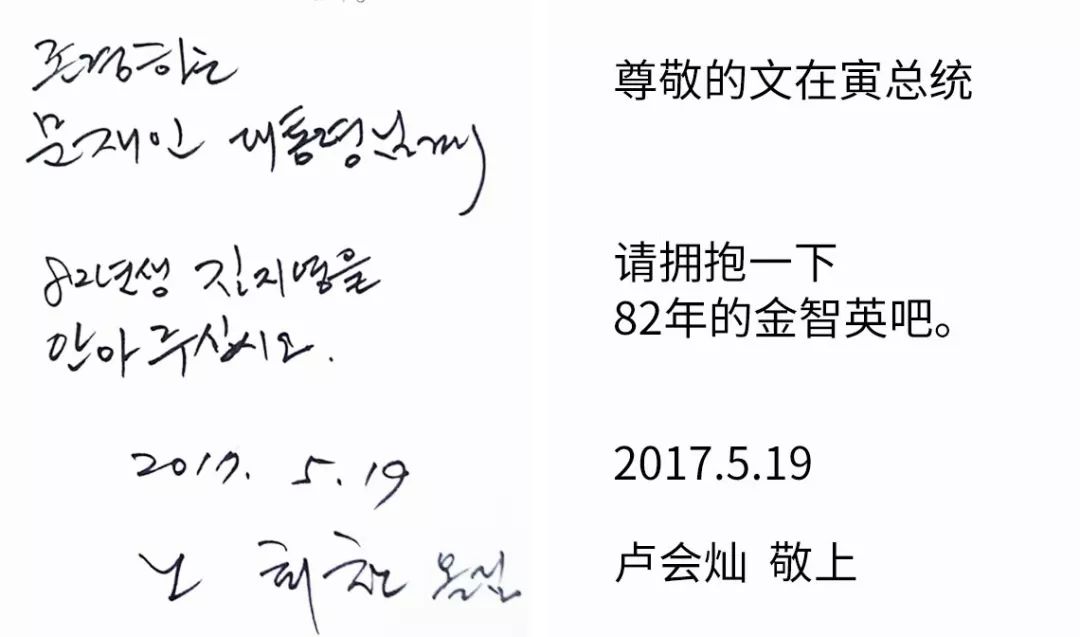 존경하는
문재인 대통령님께
82년생 김지영을
안아 주십시오.
2017. 5. 19
노 회찬 올림
尊敬的文在寅总统
请拥抱一下
82年的金智英吧。
2017.5.19
卢会灿 敬上